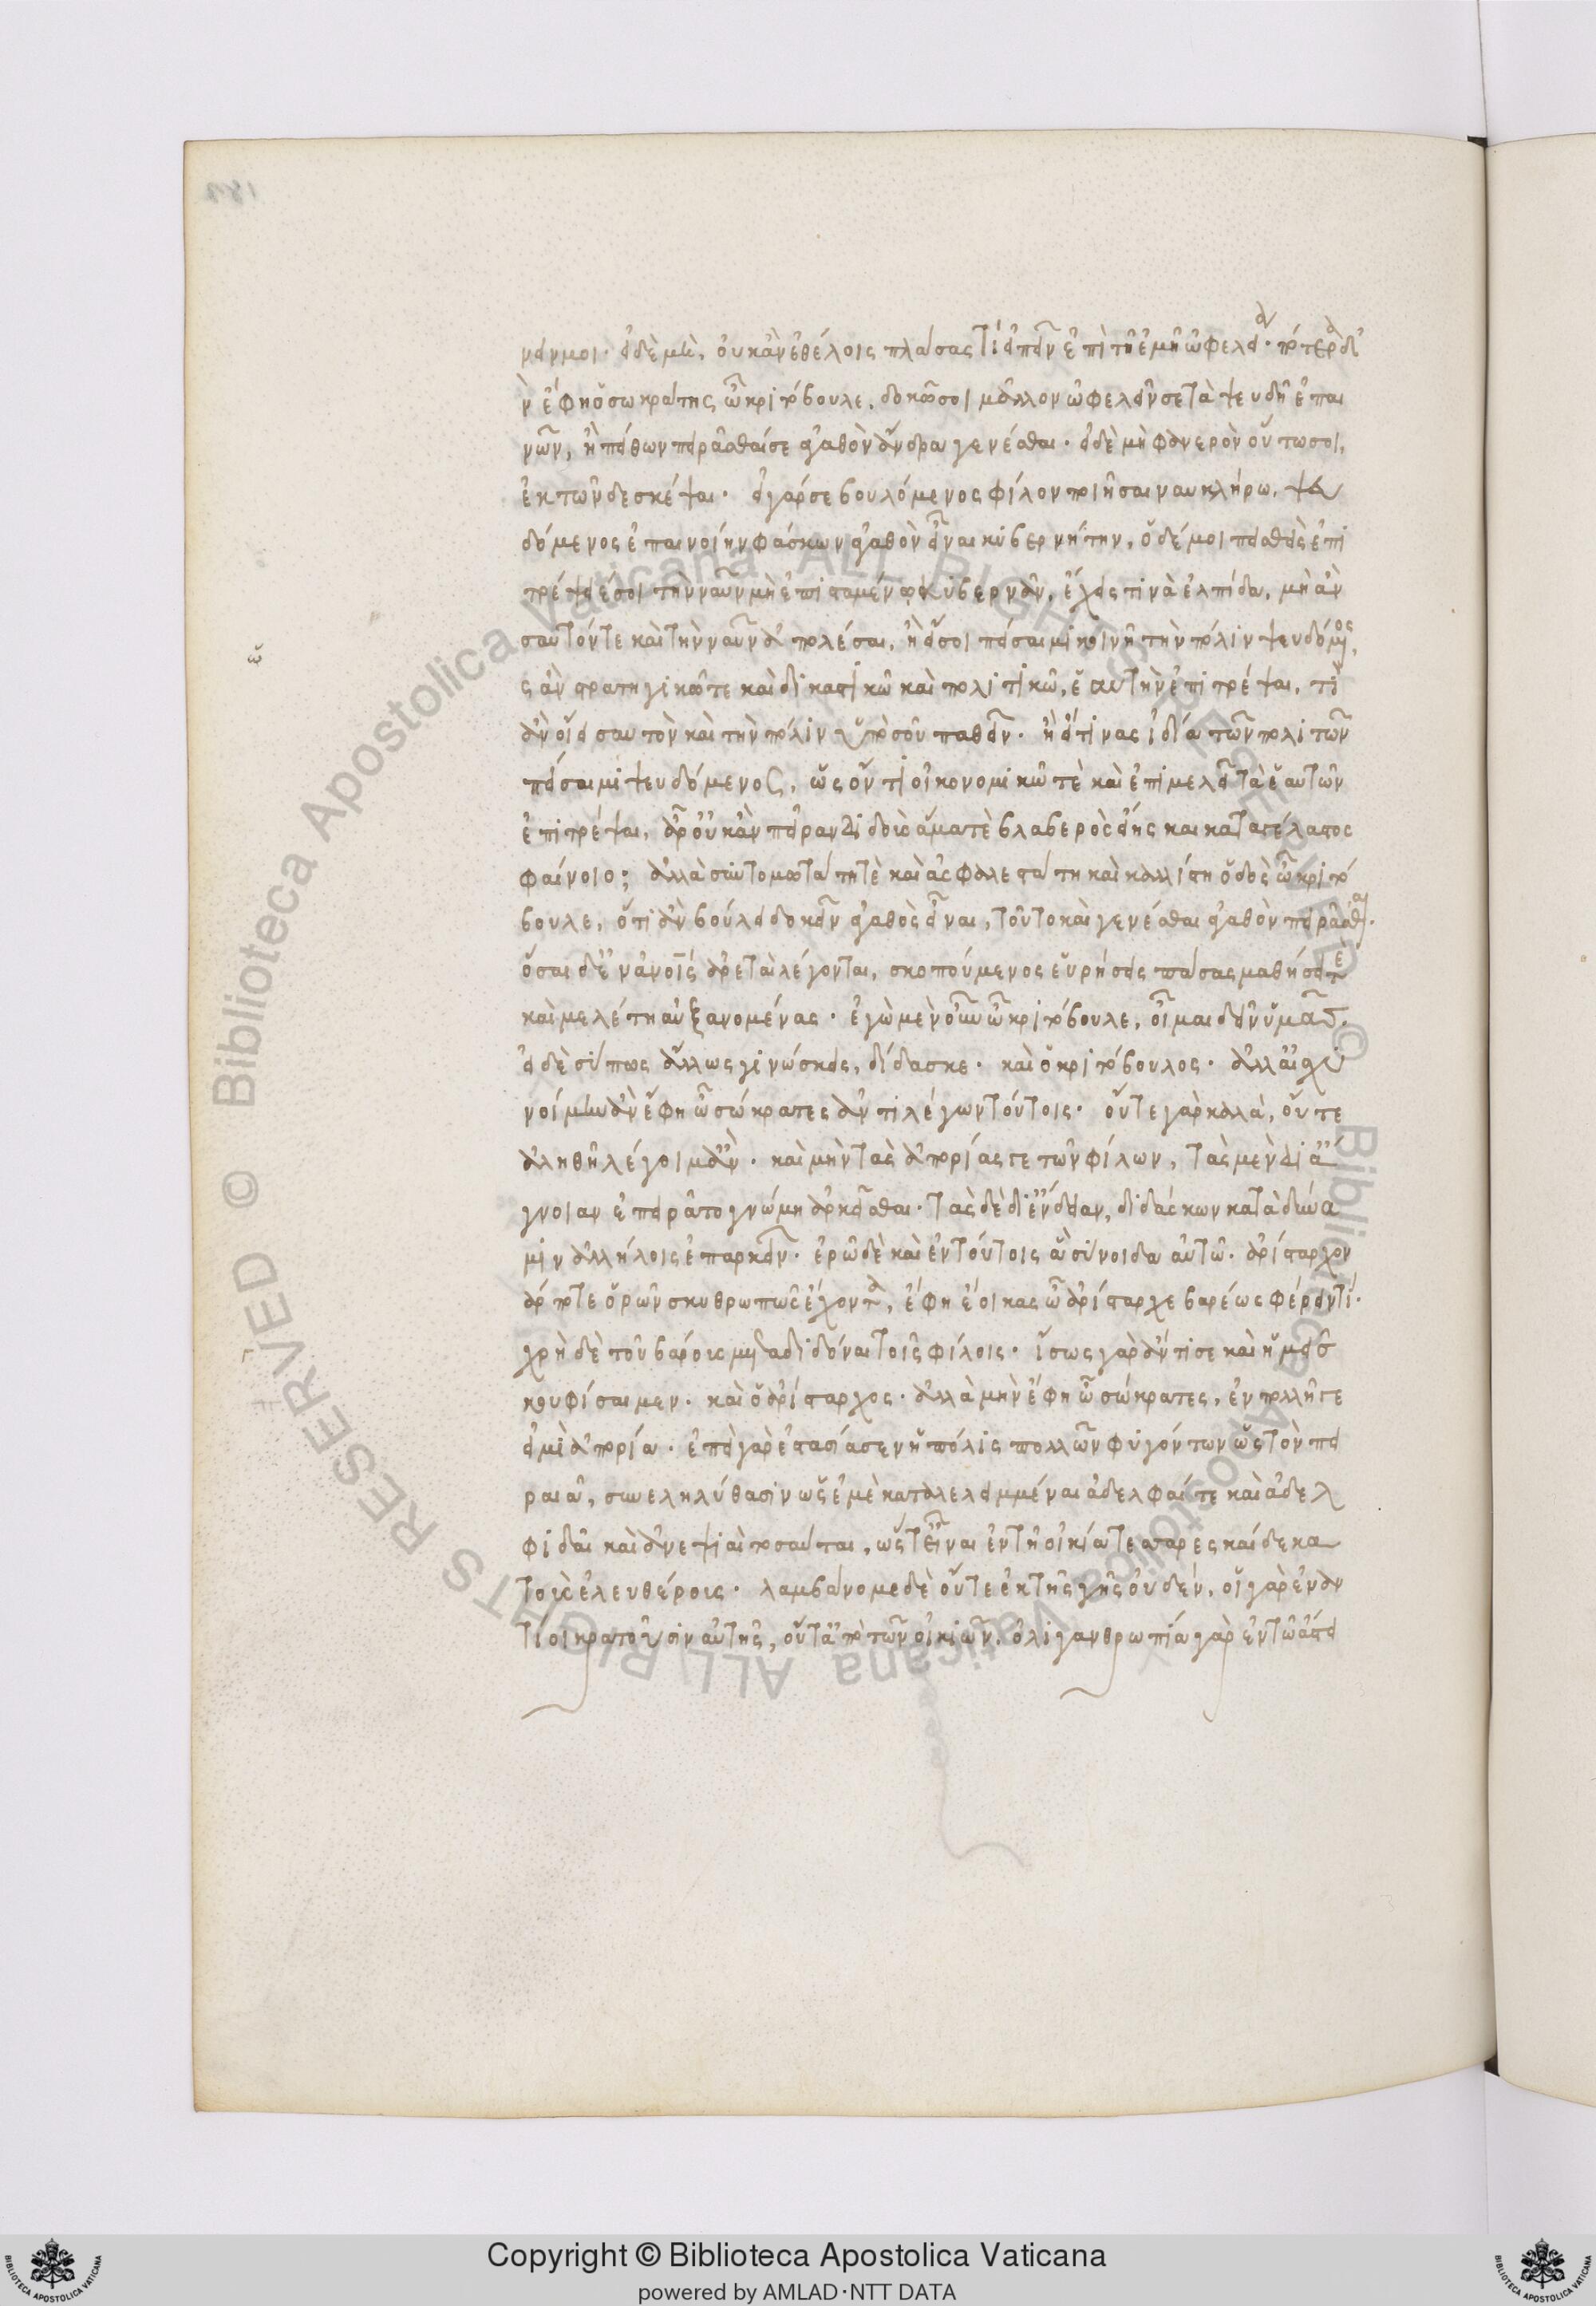 νάν μοι· εἰ δὲ μὴ, οὐκ ἂν ἐθέλοις πλάσας τί εἰπεῖν ἐπὶ τῇ ἐμῇ ὠφελείᾳ· πότερα δ᾽ ἂ
ν ἔφη ὁ σωκράτης ὦ κριτόβουλε, δοκῶ σοι μᾶλλον ὠφελεῖν σε τὰ ψευδῆ ἐπαι
νῶν, ἢ πείθων πειρᾶσθαί σε ἀγαθὸν ἄνδρα γενέσθαι· εἰ δὲ μὴ φανερὸν οὕτω σοι,
ἐκ τῶνδε σκέψαι· εἰ γάρ σε βουλόμενος φίλον ποιῆσαι ναυκλήρῳ, ψευ
δόμενος ἐπαινοίην φάσκων ἀγαθὸν εἶναι κυβερνήτην, ὁ δέ μοι πεισθεὶς ἐπι
τρέψειέ σοι τὴν ναῦν μὴ ἐπισταμένῳ κυβερνᾶν, ἔχεις τινὰ ἐλπίδα, μὴ ἂν
σαυτόν τε καὶ τὴν ναῦν ἀπολέσαι, ἢ εἴ σοι πείσαιμι κοινῇ τὴν πόλιν ψευδόμενος,
ὡς ἂν στρατηγικῷ τε καὶ δικαστικῷ καὶ πολιτικῷ, ἑαυτὴν ἐπιτρέψαι, τί
ἂν οἴει σαυτὸν καὶ τὴν πόλιν ὑπὸ σοῦ παθεῖν· ἢ εἴ τινας ἰδίᾳ τῶν πολιτῶν
πείσαιμι ψευδόμενος, ὡς ὄντι οἰκονομικῷ τὲ καὶ ἐπιμελεῖ τὰ ἑαυτῶν
ἐπιτρέψαι, ἆρ᾽ οὐκ ἂν πεῖραν διδοὺς ἅμα τὲ βλαβερὸς εἴης καὶ καταγέλαστος
φαίνοιο; ἀλλὰ συντομωτάτη τὲ καὶ ἀσφαλεστάτη καὶ καλλίστη ὁδὸς ὦ κριτό
βουλε, ὅτι ἂν βούλει δοκεῖν ἀγαθὸς εἶναι, τοῦτο καὶ γενέσθαι ἀγαθὸν πειρᾶσθαι.
ὅσαι δ᾽ ἐν ἀνοις ἀρεταὶ λέγονται, σκοπούμενος εὑρήσεις πάσας μαθήσει τὲ
καὶ μελέτῃ αὐξανομένας· ἐγὼ μὲν οὖν ὦ κριτόβουλε, οἶμαι δεῖν ἡμᾶς.
εἰ δὲ σύ πως ἄλλως γινώσκεις, δίδασκε· καὶ ὁ κριτόβουλος· ἀλλ᾽ αἰσχυ
νοίμην ἂν ἔφη ὦ σώκρατες ἀντιλέγων τούτοις· οὔτε γὰρ καλὰ, οὔτε
ἀληθῆ λέγοιμ᾽ ἂν· καὶ μὴν τὰς ἀπορίας τε τῶν φίλων, τὰς μὲν δι᾽ ἄ
γνοιαν ἐπειρᾶτο γνώμῃ ἀρκεῖσθαι· τὰς δὲ δι᾽ ἔνδειαν, διδάσκων κατὰ δύνα
μιν ἀλλήλοις ἐπαρκεῖν· ἐρῶ δὲ καὶ ἐν τούτοις ἃ σύνοιδα αὐτῷ· ἀρίσταρχον
ἄρ ποτε ὁρῶν σκυθρωπῶς ἔχοντα, ἔφη ἔοικας ὦ ἀρίσταρχε βαρέως φέρειν τί·
χρὴ δὲ τοῦ βάρους μεταδιδόναι τοῖς φίλοις· ἴσως γὰρ ἄν τι σε καὶ ἡμεῖς
κουφίσαιμεν· καὶ ὁ ἀρίσταρχος· ἀλλὰ μὴν ἔφη ὦ σώκρατες, ἐν πολλῇ τε
εἰμὶ ἀπορίᾳ· ἐπεὶ γὰρ ἐστασίασεν ἡ πόλις πολλῶν φυγόντων ὡς τὸν πει
ραιᾶ, συνεληλύθασιν ὡς ἐμὲ καταλελειμμέναι ἀδελφαί τε καὶ ἀδελ
φιδαῖ καὶ ἀνεψιαὶ τοσαῦται, ὥστ᾽ εἶναι ἐν τῇ οἰκίᾳ τεσσαρεςκαίδεκα
τοὺς ἐλευθέρους· λαμβάνομεν δὲ οὔτε ἐκ τῆς γῆς οὐδὲν, οἱ γὰρ ἐναν
τίοι κρατοῦσιν αὐτῆς, οὔτ᾽ ἀπὸ τῶν οἰκιῶν. ὀλιγανθρωπία γὰρ ἐν τῷ ἄστει
Copyright © Biblioteca Apostolica Vaticana
powered by AMLAD·NTT DATA